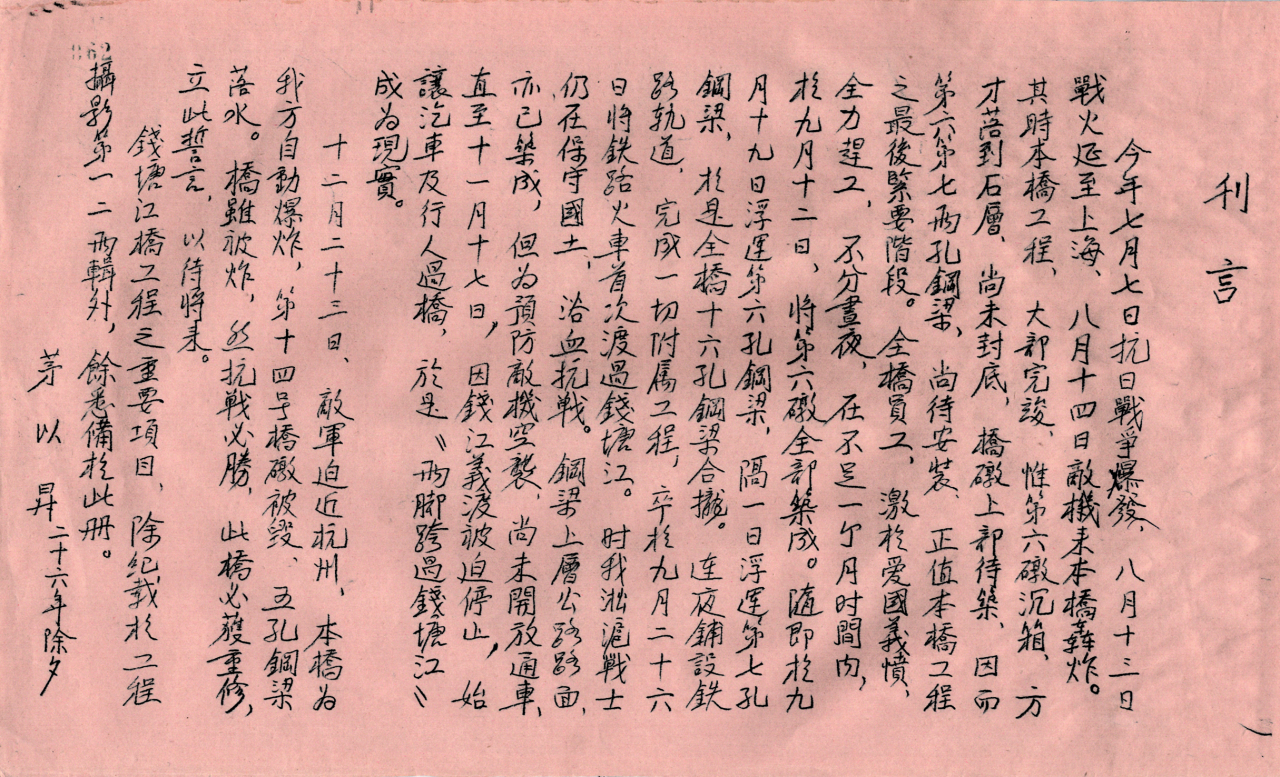 862
刊言
今年七月七日抗日戰爭爆發、八月十三日
戰火延至上海、八月十四日敵機来本橋轟炸。
其時本橋工程、大部完竣、惟第六礅沉箱、方
才落到石層、尚未封底、橋礅上部待築、因而
第六第七两孔鋼梁、尚待安装、正值本橋工程
之最後緊要階段。全橋員工、激於愛國義憤、
全力趕工、不分晝夜、在不足一个月时間内,
於九月十二日,將第六礅全部築成。随即於九
月十九日浮運第六孔鋼梁,隔一日浮運第七孔
鋼梁,於是全橋十六孔鋼梁合攏。連夜鋪設鉄
路軌道、完成一切附属工程,卒於九月二十六
日將鉄路火車首次渡過錢塘江。时我淞滬戰士
仍在保守國土,浴血抗戦。鋼梁上層公路路面、
亦已築成,但為預防敵機空襲、尚未開放通車、
直至十一月十七日,因錢江義渡被迫停止,始
讓汽車及行人過橋、於是〝两脚跨過錢塘江〞
成為現實。
十二月二十三日、敵軍迫近杭州、本橋為
我方自動爆炸,第十四号橋礅被毀、五孔鋼梁
落水。橋雖被炸,然抗戦必勝,此橋必獲重修,
立此誓言、以待將来。
錢塘江橋工程之重要項目、除紀載於工程
攝影第一二两輯外,餘悉備於此冊。
茅以昇 二十六年除夕